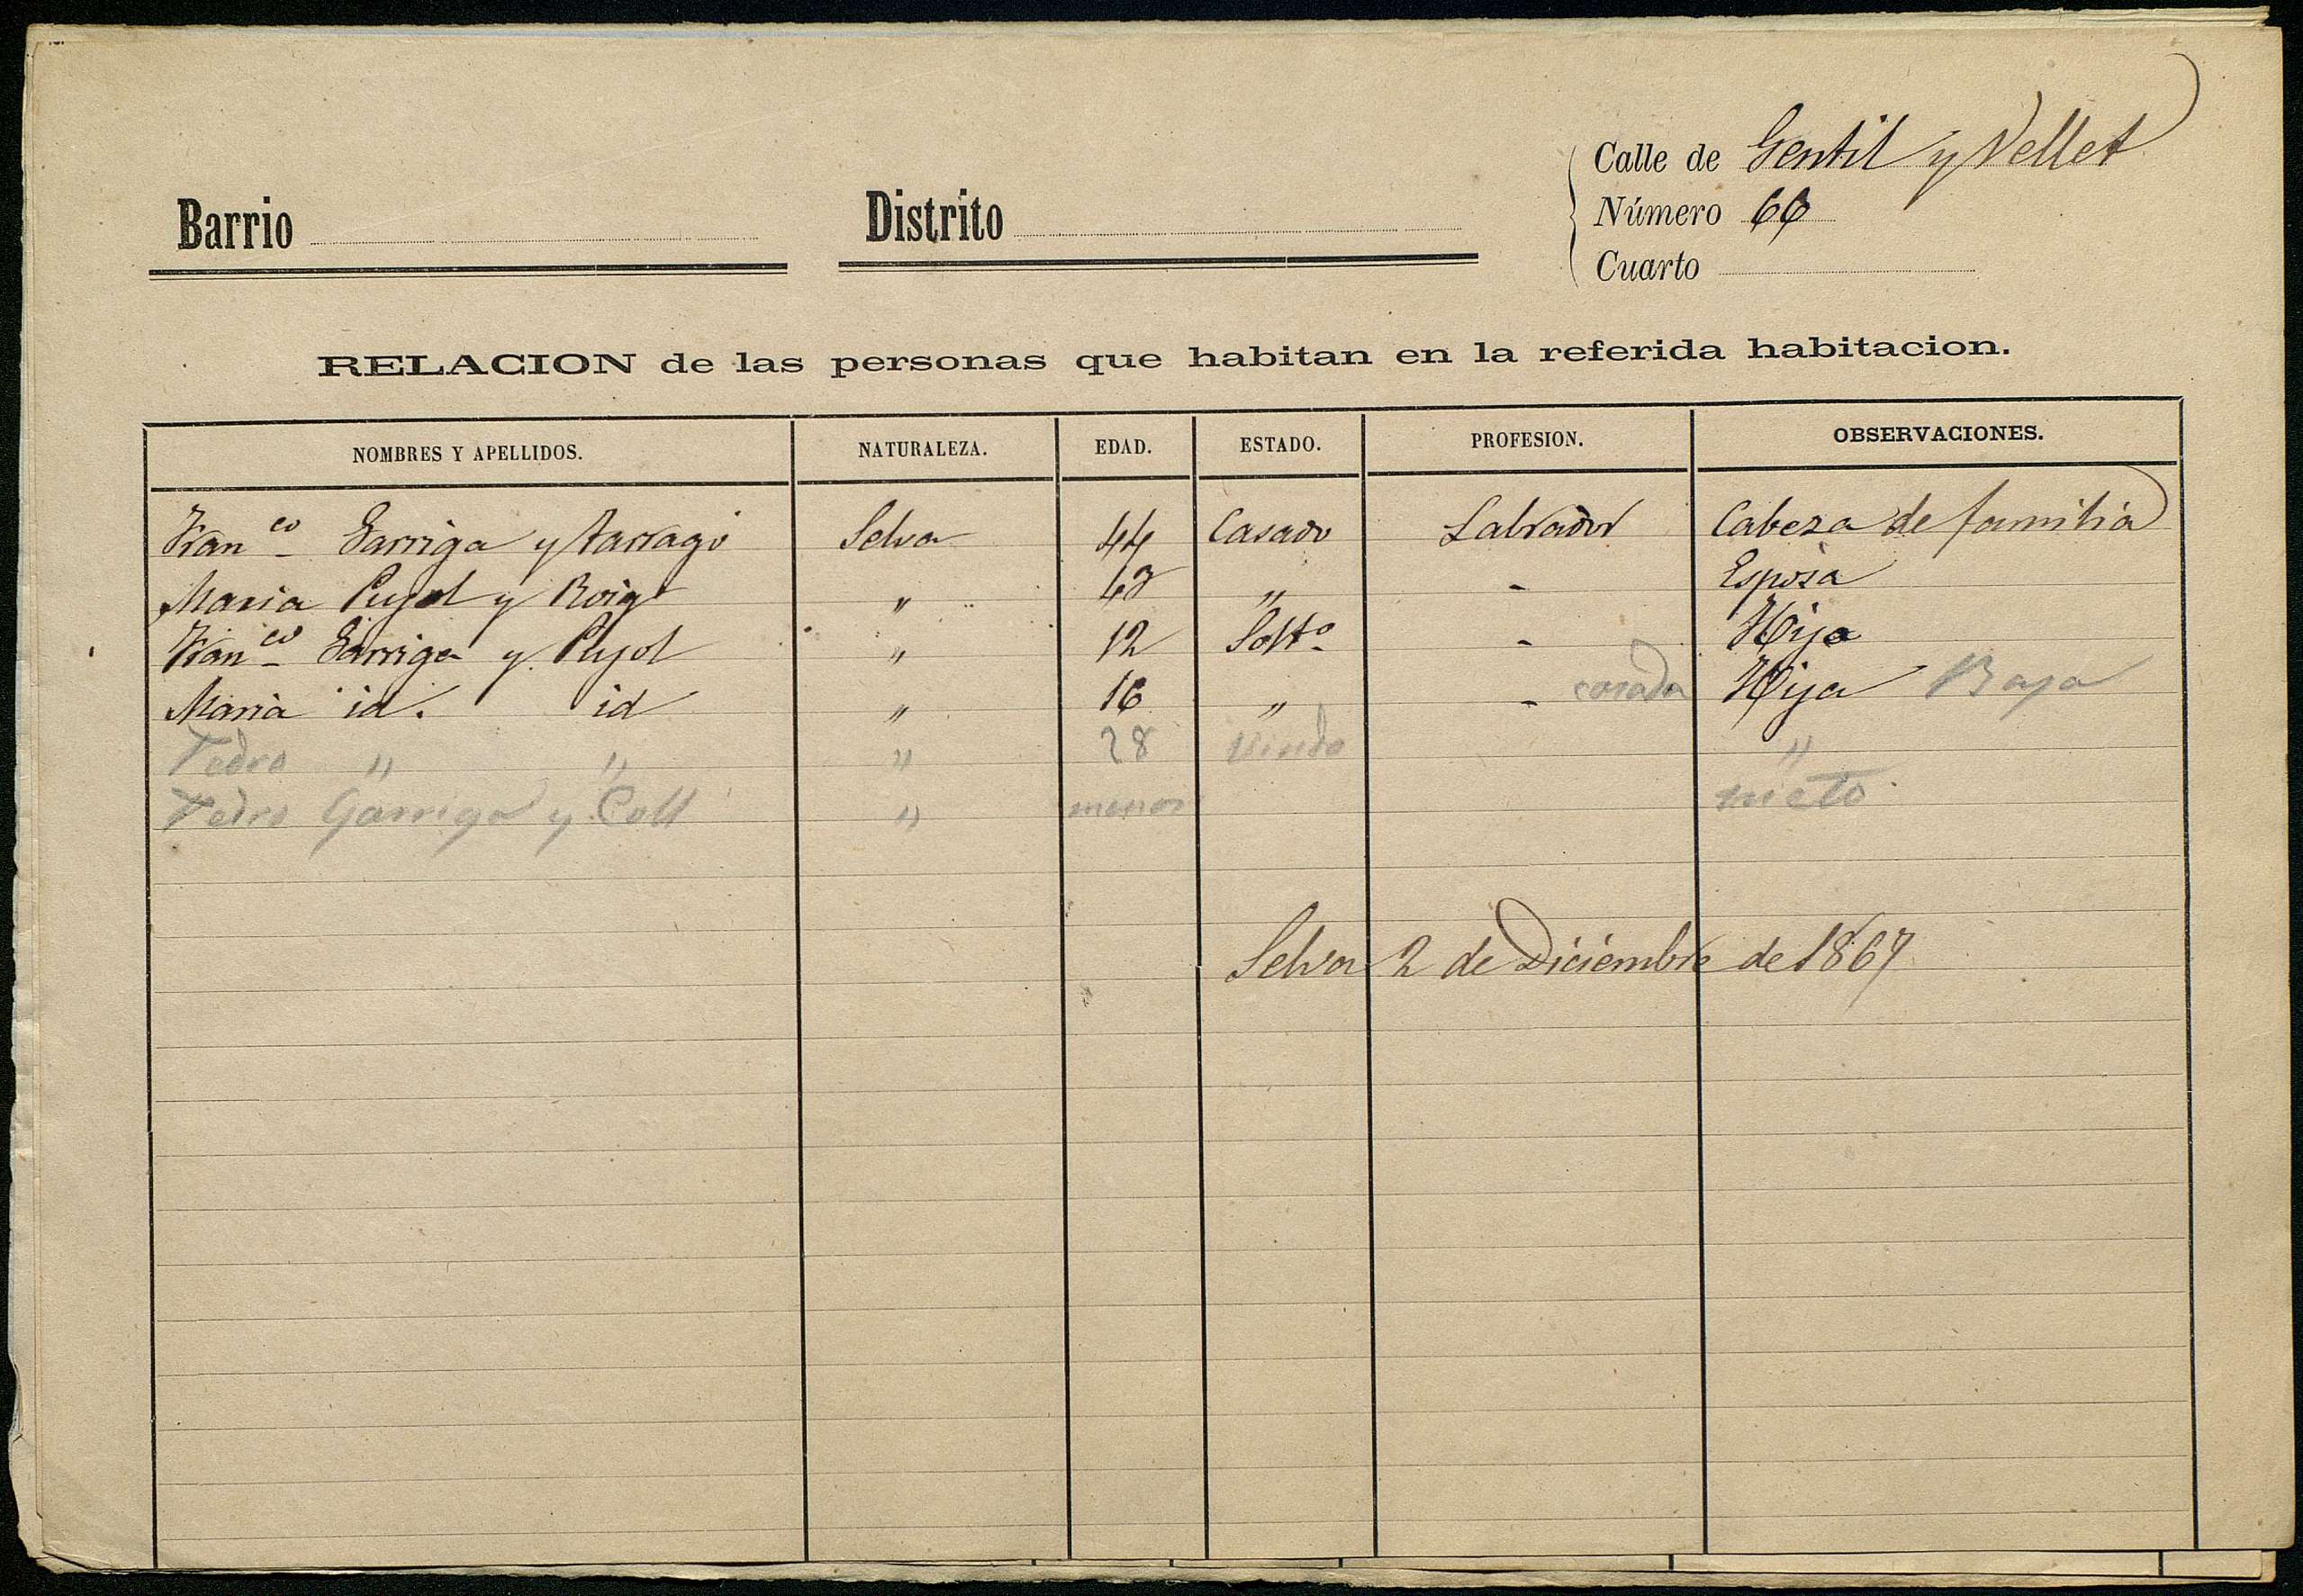 Calle de Gentil y Vellet
Barrio Distrito Número 66
Cuarto
RELACION de las personas que habitan en la referida habitacion.
NOMBRES Y APELLIDOS. NATURALEZA. EDAD. ESTADO. PROFESION. OBSERVACIONES.
Franco Garriga y Tarragó Selva 44 Casado Labrador Cabeza de familia
Maria Pujol y Roig " 43 " - Esposa
Franco Garriga y Pujol " 12 Soltº - Hijo
Maria id. id " 16 " - casada Hija Baja
Pedro " " " 28 Viudo "
Pedro Garriga y Coll " menor nieto
Selva 2 de Diciembre de 1867